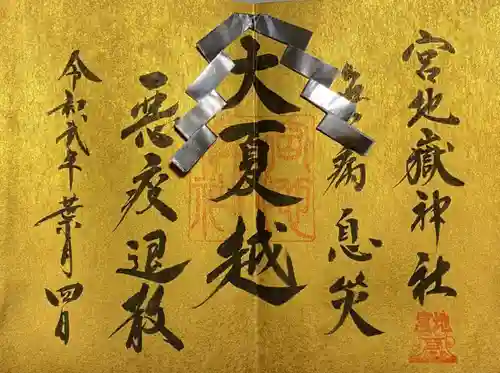 宮地嶽神社
病息災
大夏越
悪疫退散
令和弐年葉月四日